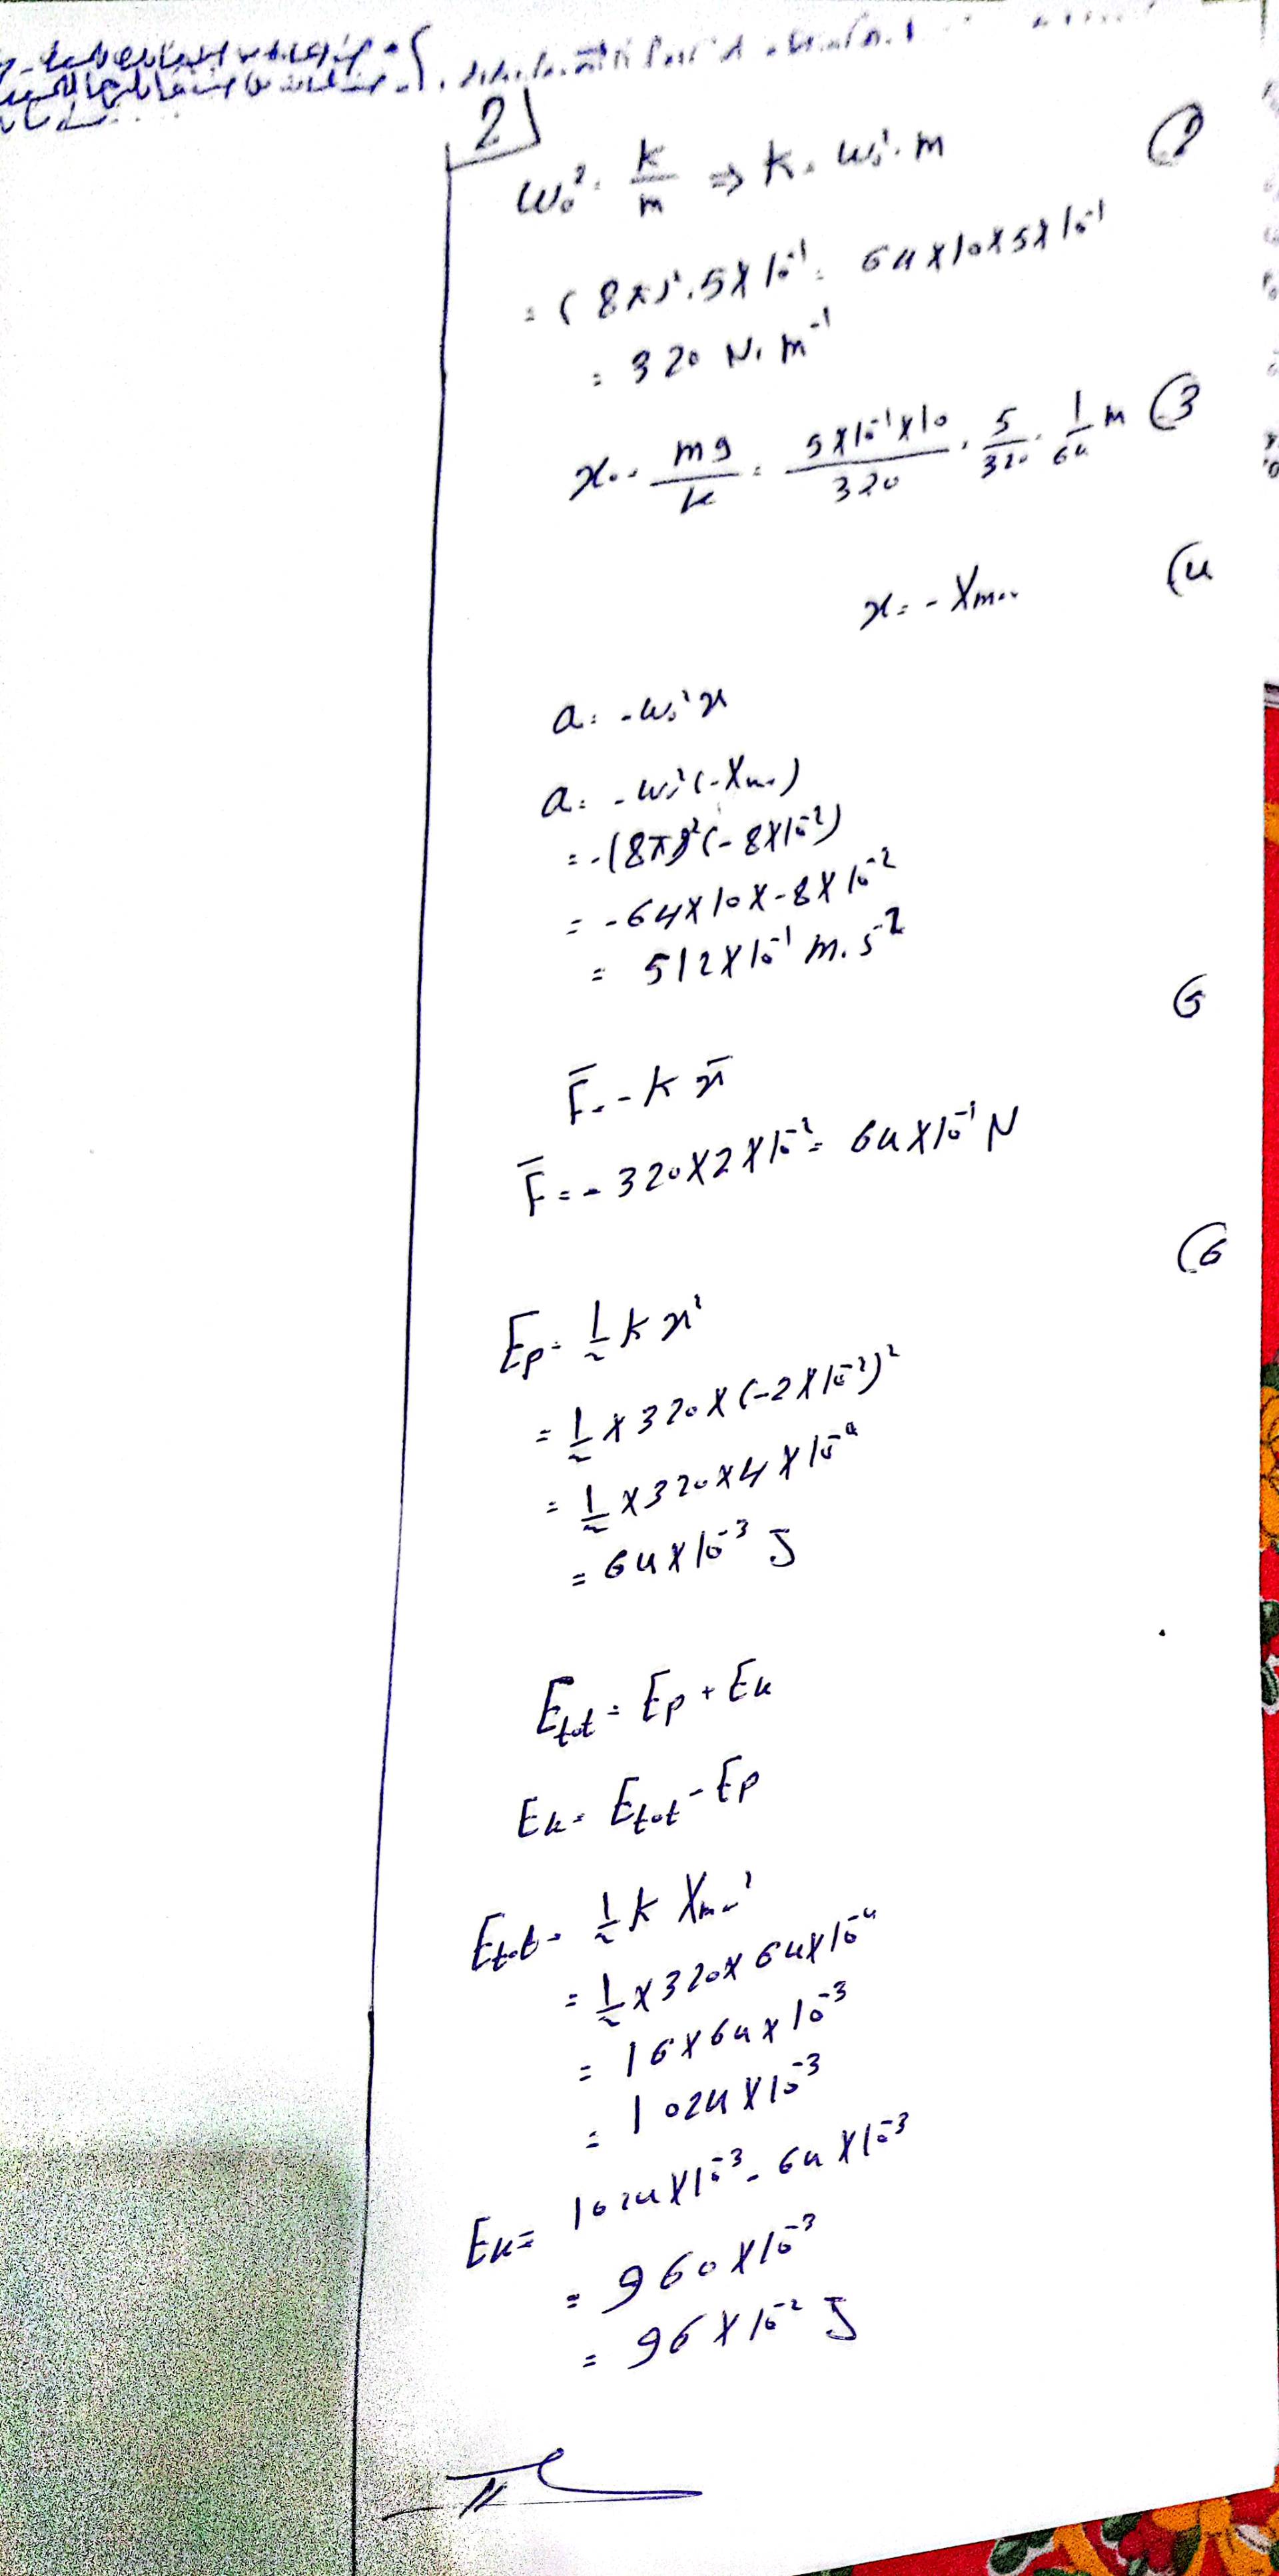 2
ω₀² = k/m ⇒ k = ω₀² . m (2
= (8π)² . 5×10⁻¹ = 64×10×5×10⁻¹
= 320 N.m⁻¹
x₀ = mg/k = 5×10⁻¹×10/320 = 5/320 = 1/64 m (3
x = -Xmax (4
a = -ω₀²x
a = -ω₀²(-Xmax)
= -(8π)²(-8×10⁻²)
= -64×10×-8×10⁻²
= 512×10⁻¹ m.s⁻²
5
F̄ = -k x̄
F̄ = -320×2×10⁻² = 64×10⁻¹ N
(6
Ep = 1/2 k x²
= 1/2 × 320×(-2×10⁻²)²
= 1/2 ×320×4×10⁻⁴
= 64×10⁻³ J
Etot = Ep + Ek
Ek = Etot - Ep
Etot = 1/2 k Xmax²
= 1/2 ×320×64×10⁻⁴
= 16×64×10⁻³
= 1024×10⁻³
Ek = 1024×10⁻³ - 64×10⁻³
= 960×10⁻³
= 96×10⁻² J